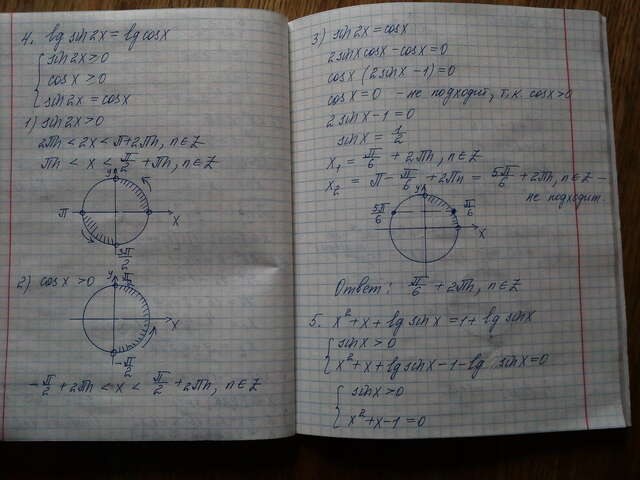 4. lg sin2x = lg cosx
sin2x > 0
cosx > 0
sin2x = cosx
1) sin2x > 0
2πn < 2x < π + 2πn, n∈Z
πn < x < π/2 + πn, n∈Z
y
π
x
3π/2
2) cosx > 0
y π/2
x
-π/2
-π/2 + 2πn < x < π/2 + 2πn, n∈Z
3) sin2x = cosx
2sinxcosx - cosx = 0
cosx (2sinx - 1) = 0
cosx = 0 - не подходит, т.к. cosx>0
2sinx - 1 = 0
sinx = 1/2
x₁ = π/6 + 2πn, n∈Z
x₂ = π - π/6 + 2πn = 5π/6 + 2πn, n∈Z -
не подходит.
y
5π/6
π/6
x
Ответ: π/6 + 2πn, n∈Z
5. x² + x + lg sinx = 1 + lg sinx
sinx > 0
x² + x + lg sinx - 1 - lg sinx = 0
sinx > 0
x² + x - 1 = 0